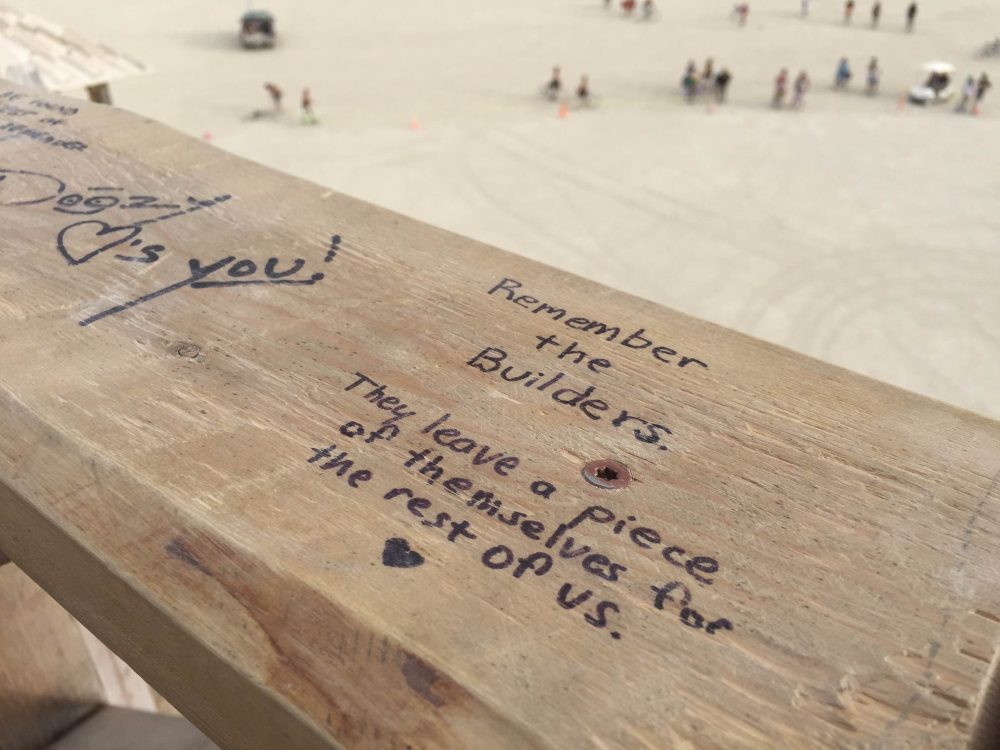 Dogz
♡'s you!
Remember
the
Builders.
They leave a piece
of themselves for
the rest of us.
♥